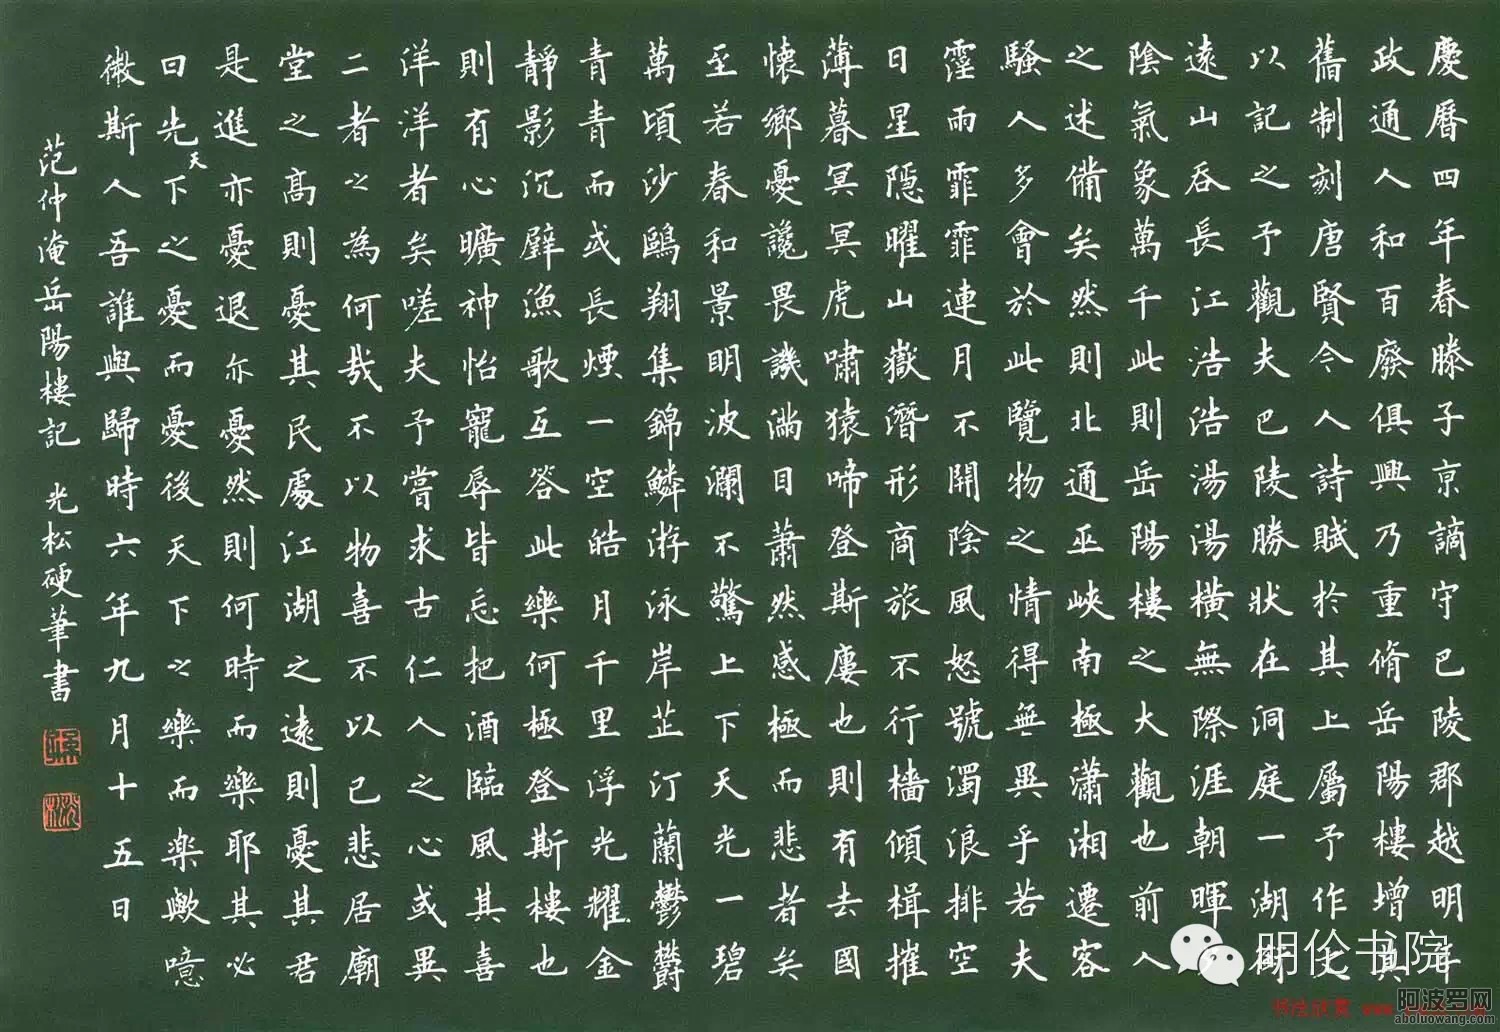 慶曆四年春滕子京謫守巴陵郡越明年
政通人和百廢俱興乃重脩岳陽樓增其
舊制刻唐賢今人詩賦於其上屬予作文
以記之予觀夫巴陵勝狀在洞庭一湖銜
遠山吞長江浩浩湯湯橫無際涯朝暉夕
陰氣象萬千此則岳陽樓之大觀也前人
之述備矣然則北通巫峽南極瀟湘遷客
騷人多會於此覽物之情得無異乎若夫
霪雨霏霏連月不開陰風怒號濁浪排空
日星隱曜山嶽潛形商旅不行檣傾楫摧
薄暮冥冥虎嘯猿啼登斯廔也則有去國
懷鄉憂讒畏譏滿目蕭然感極而悲者矣
至若春和景明波瀾不驚上下天光一碧
萬頃沙鷗翔集錦鱗游泳岸芷汀蘭鬱欝
青青而或長煙一空皓月千里浮光耀金
靜影沉璧漁歌互答此樂何極登斯樓也
則有心曠神怡寵辱皆忘把酒臨風其喜
洋洋者矣嗟夫予嘗求古仁人之心或異
二者之為何哉不以物喜不以己悲居廟
堂之高則憂其民處江湖之遠則憂其君
是進亦憂退亦憂然則何時而樂耶其必
曰先天下之憂而憂後天下之樂而楽歟噫
微斯人吾誰與歸時六年九月十五日
范仲淹岳陽樓記 光松硬筆書
明伦书院
阿波罗网
aboluowang.com